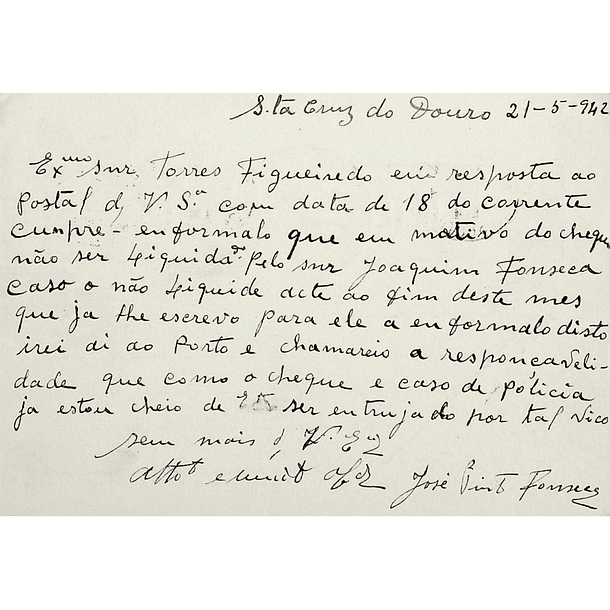 S.ta Cruz do Douro 21-5-942
Exmo snr. Torres Figueiredo em resposta ao
Postal d V. Sª com data de 18 do corrente
Cumpre-enformalo que em motivo do cheque
não ser Liquidado pelo snr Joaquim Fonseca
Caso o não Liquide acte ao fim deste mes
que ja lhe escrevo para ele a enformalo disto
irei ai ao Porto e chamareio a responcaveli-
dade que como o cheque e caso de Policia
ja estou cheio de ser entrujado por tal vico
sem mais d V. Ex
Attot e muit José Pint Fonseca